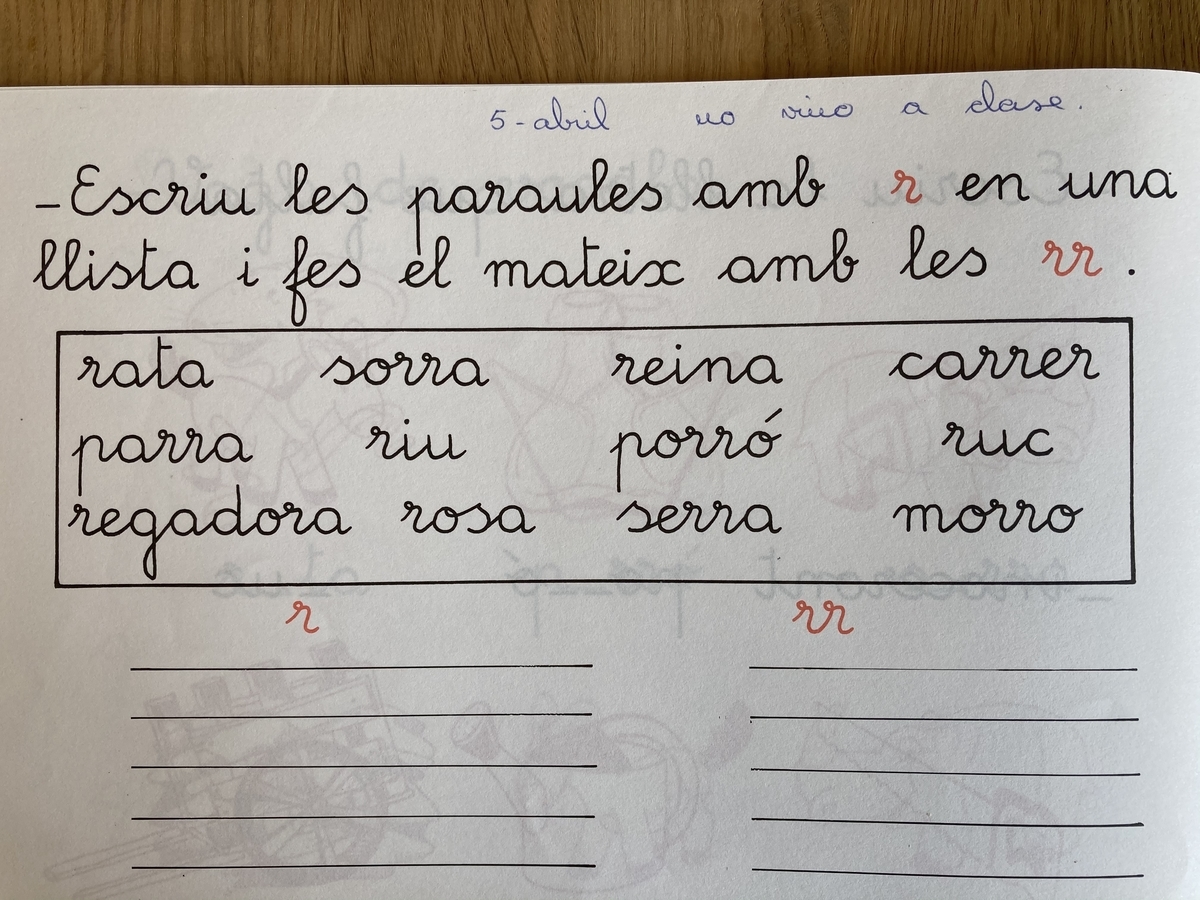 5-abril no vino a clase.
-Escriu les paraules amb r en una
llista i fes el mateix amb les rr.
rata sorra reina carrer
parra riu porró ruc
regadora rosa serra morro
r rr